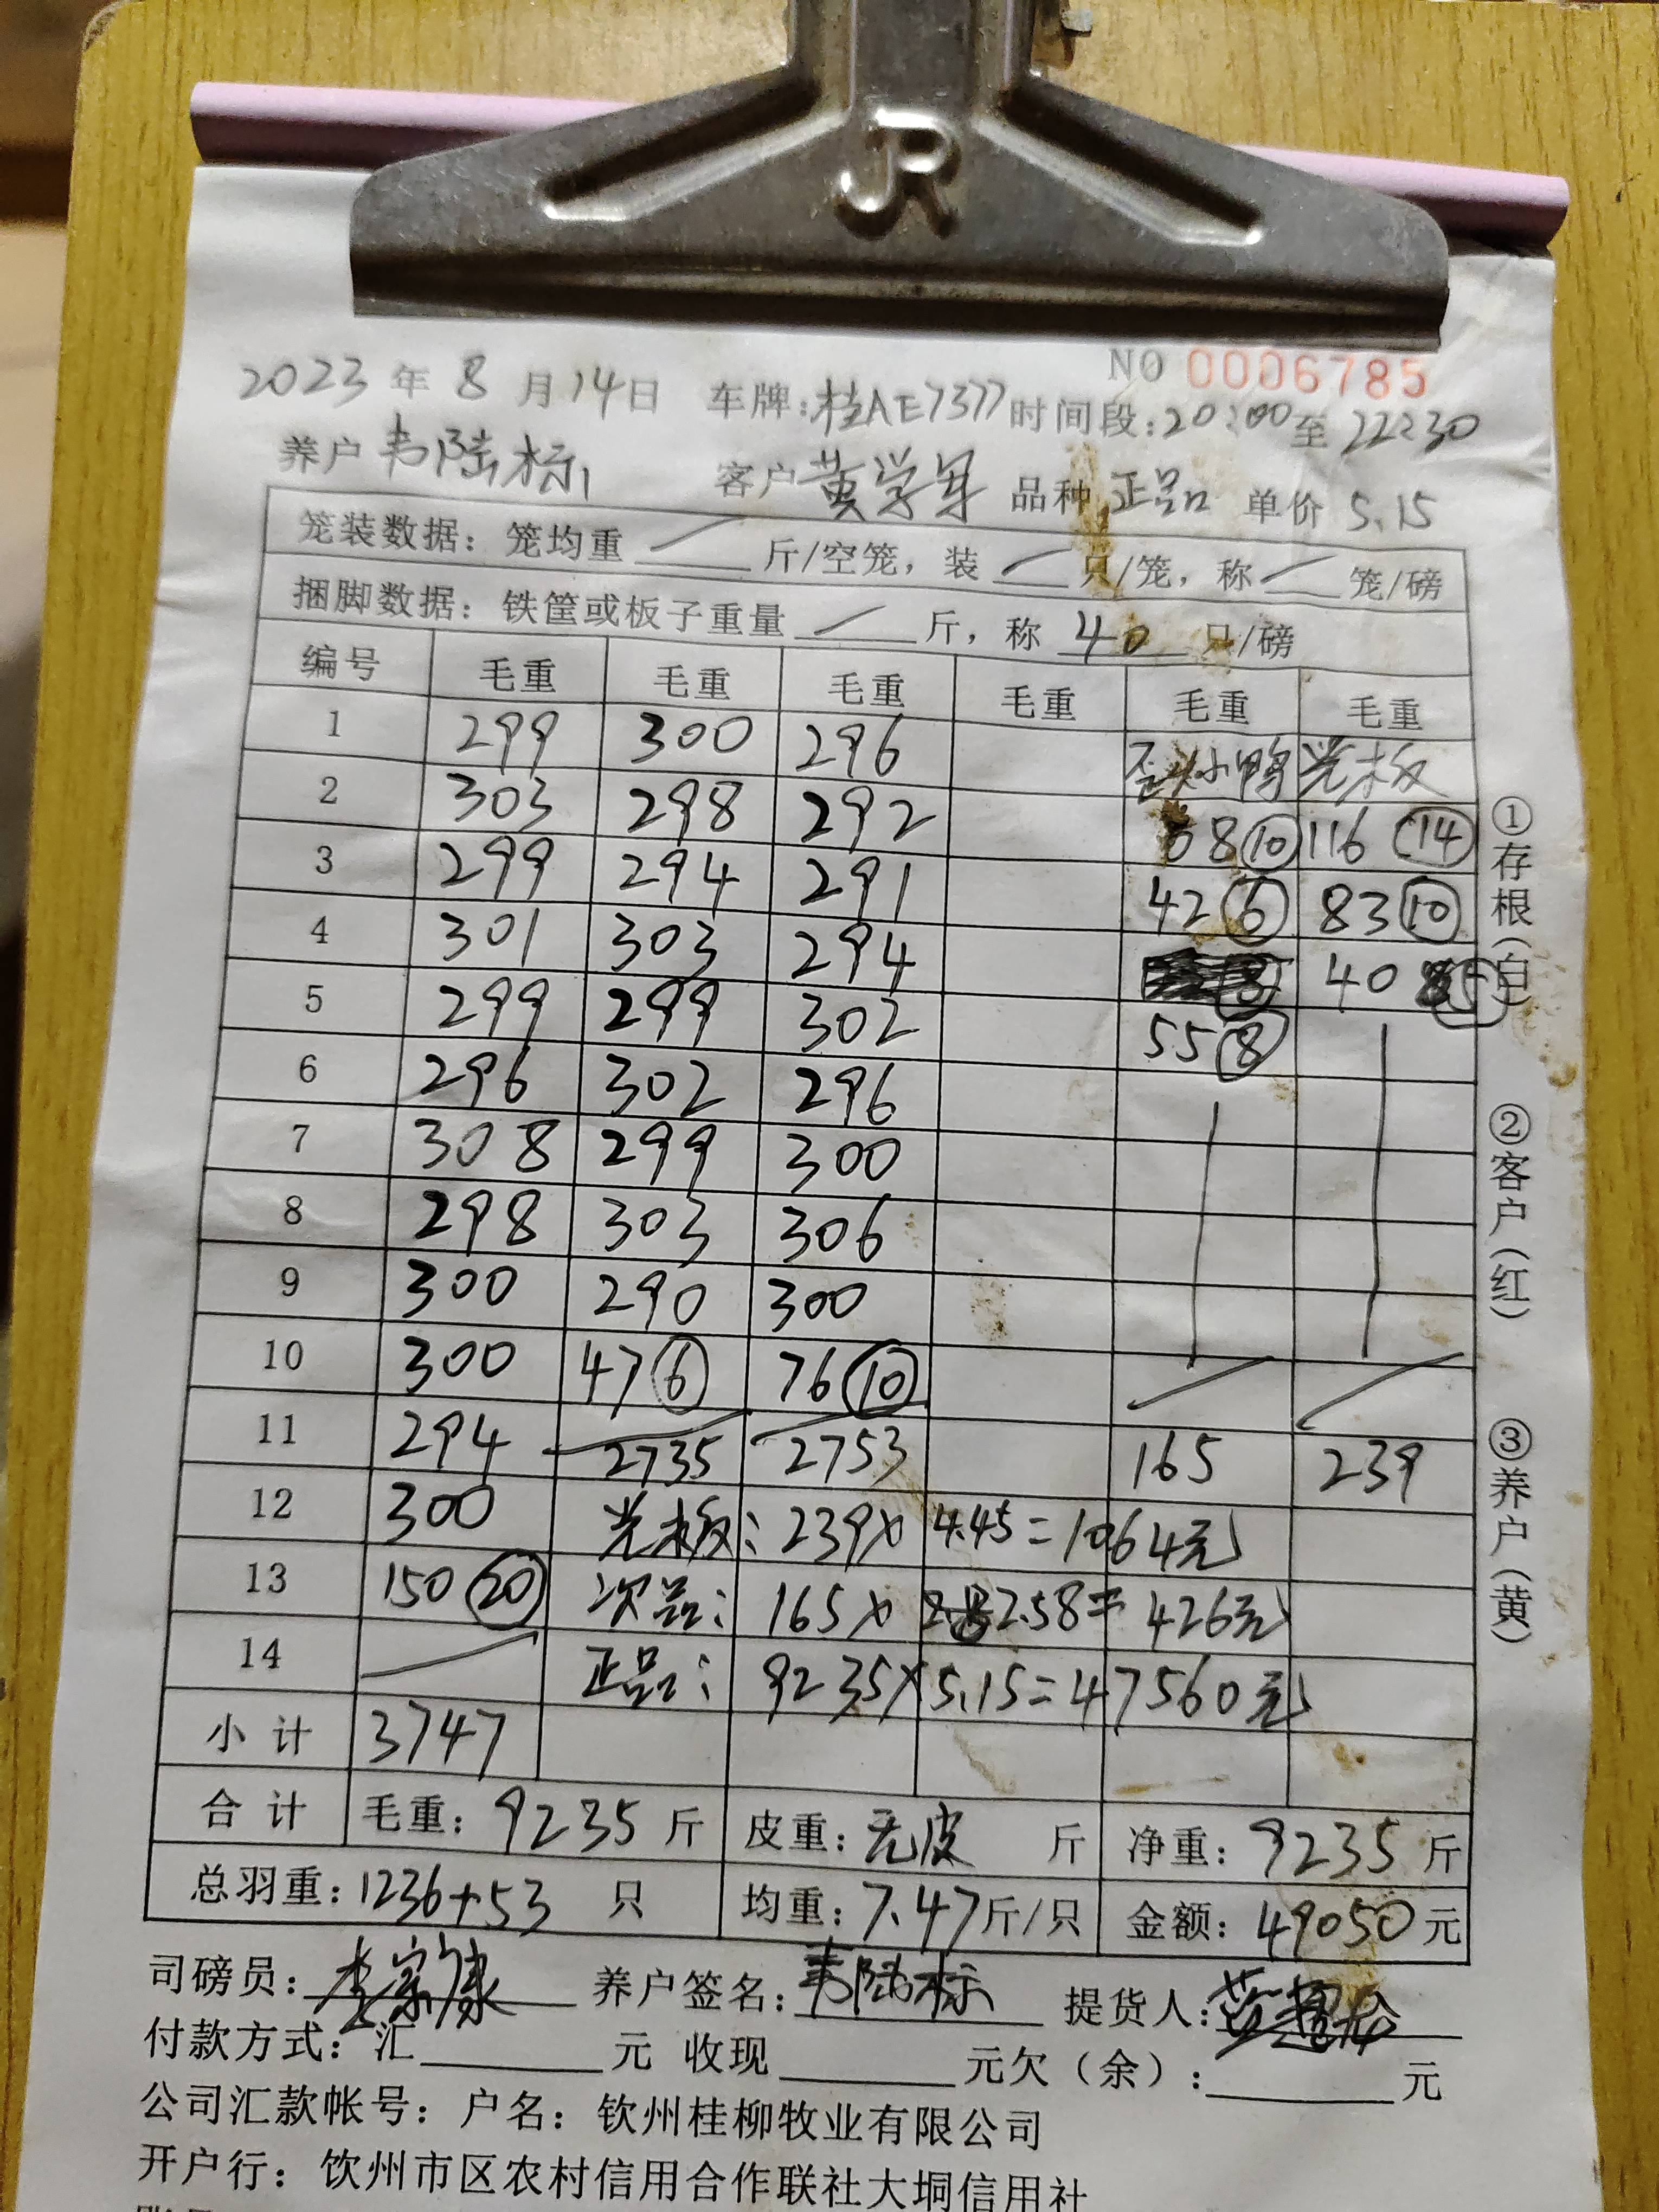 JR
NO 0006785
2023年8月14日 车牌:桂AE7377 时间段:20:00至22:30
养户 韦陆标 客户 黄学军 品种 正品 单价 5.15
笼装数据: 笼均重 / 斤/空笼, 装 / 只/笼, 称 / 笼/磅
捆脚数据: 铁筐或板子重量 / 斤, 称 40 只/磅
编号 毛重 毛重 毛重 毛重 毛重 毛重
1 299 300 296 歪头小鸭 光板
2 303 298 292 68⑩ 116⑭
3 299 294 291 42⑥ 83⑩
4 301 303 294 ⑧ 40⑤
5 299 299 302 55⑧
6 296 302 296
7 308 299 300
8 298 303 306
9 300 290 300
10 300 47⑥ 76⑩
11 294 2735 2753 165 239
12 300 光板: 239×4.45=1064元
13 150⑳ 次品: 165×2.58=426元
14 正品: 9235×5.15=47560元
小计 3747
合计 毛重: 9235 斤 皮重: 无皮 斤 净重: 9235 斤
总羽重: 1236+53 只 均重: 7.47斤/只 金额: 49050元
司磅员: 李宗康 养户签名: 韦陆标 提货人:
付款方式: 汇 元 收现 元欠(余): 元
公司汇款帐号: 户名: 钦州桂柳牧业有限公司
开户行: 饮州市区农村信用合作联社大垌信用社
①存根(白) ②客户(红) ③养户(黄)